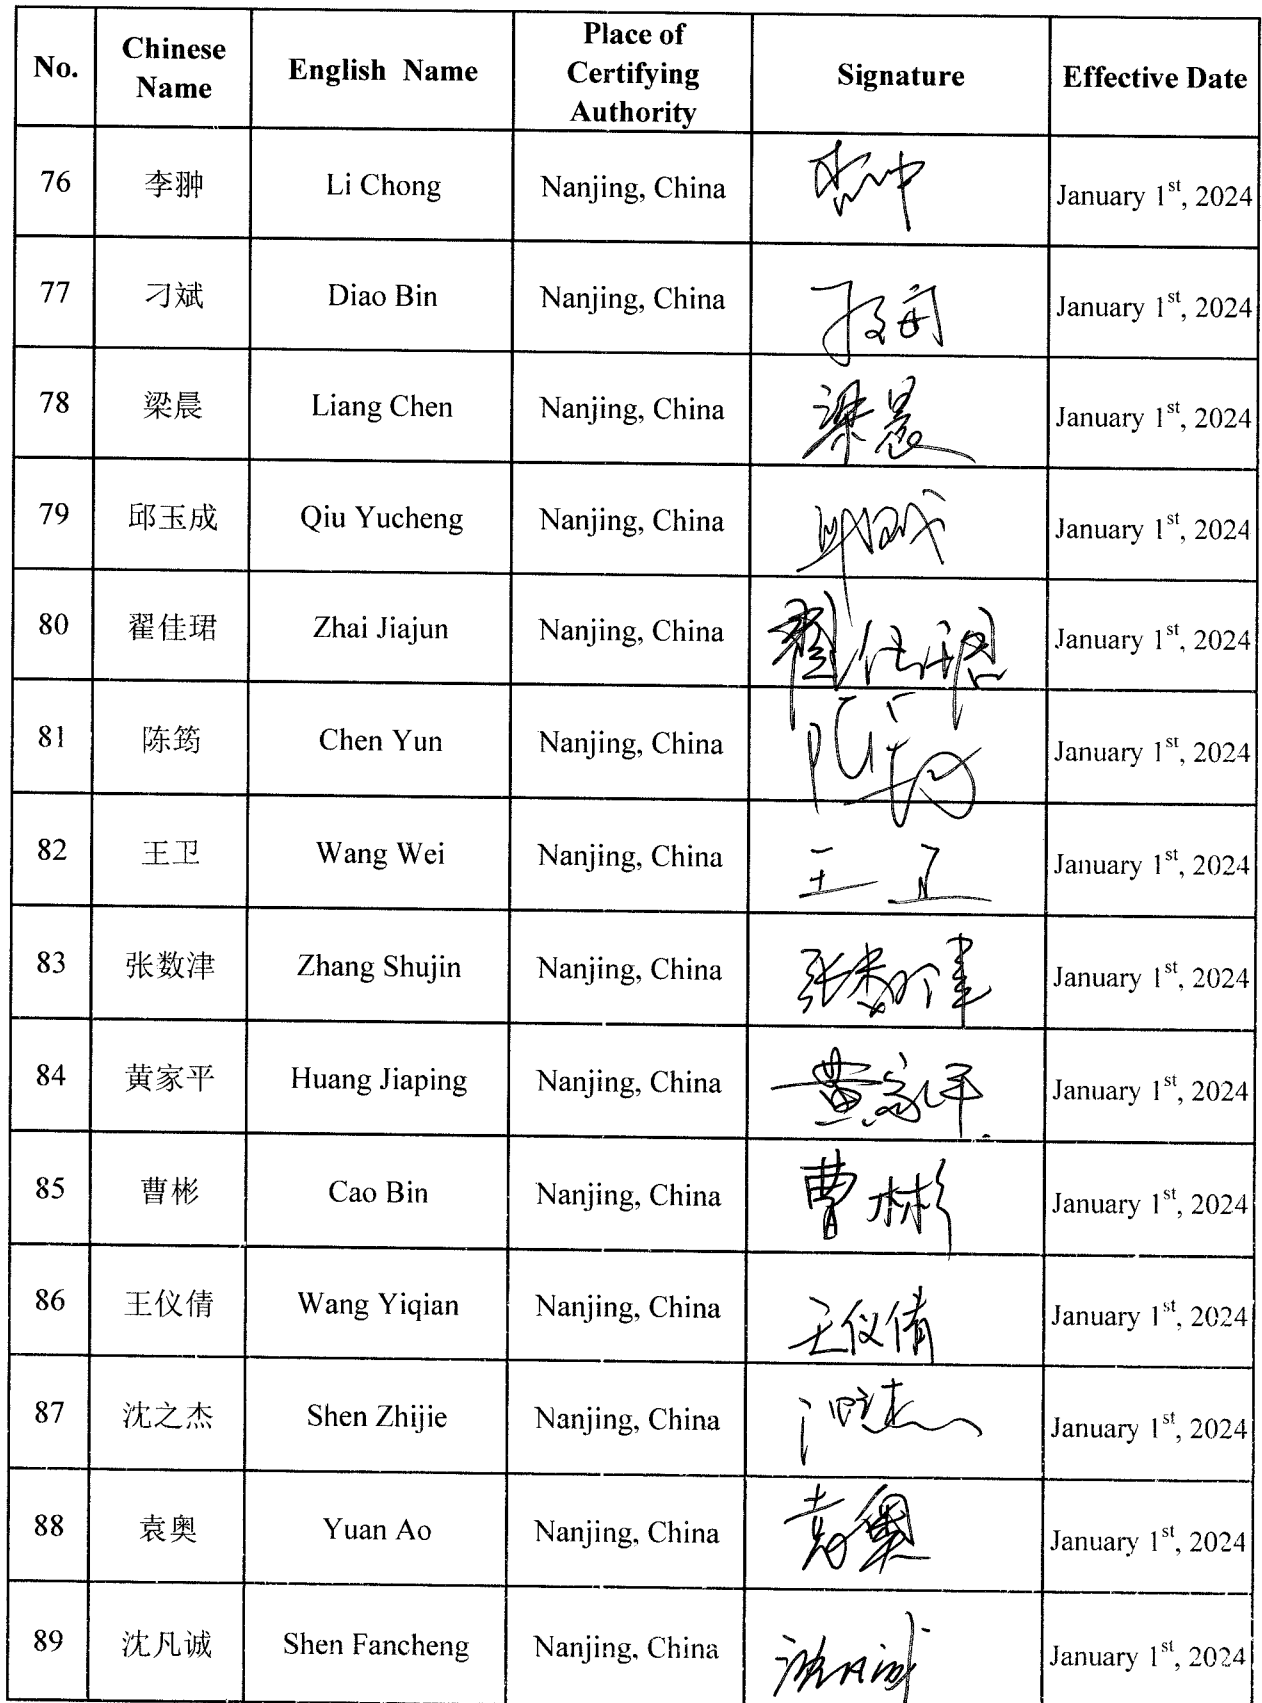 No. Chinese Name English Name Place of Certifying Authority Signature Effective Date
76 李翀 Li Chong Nanjing, China January 1st, 2024
77 刁斌 Diao Bin Nanjing, China January 1st, 2024
78 梁晨 Liang Chen Nanjing, China 梁晨 January 1st, 2024
79 邱玉成 Qiu Yucheng Nanjing, China January 1st, 2024
80 翟佳珺 Zhai Jiajun Nanjing, China 翟佳珺 January 1st, 2024
81 陈筠 Chen Yun Nanjing, China January 1st, 2024
82 王卫 Wang Wei Nanjing, China 王卫 January 1st, 2024
83 张数津 Zhang Shujin Nanjing, China 张数津 January 1st, 2024
84 黄家平 Huang Jiaping Nanjing, China 黄家平 January 1st, 2024
85 曹彬 Cao Bin Nanjing, China 曹彬 January 1st, 2024
86 王仪倩 Wang Yiqian Nanjing, China 王仪倩 January 1st, 2024
87 沈之杰 Shen Zhijie Nanjing, China January 1st, 2024
88 袁奥 Yuan Ao Nanjing, China 袁奥 January 1st, 2024
89 沈凡诚 Shen Fancheng Nanjing, China January 1st, 2024